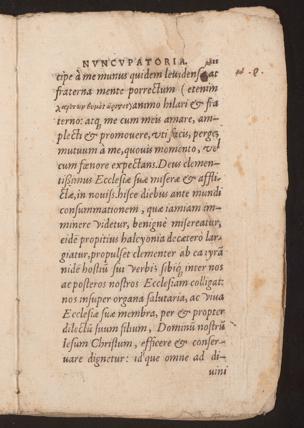 NVNCVPATORIA.
cipe à me munus quidem leuidense, at
fraterna mente porrectum (etenim
animo hilari & fra
terno: atq; me cum meis amare, am-
plecti & promouere, vti fœcis, perge;
mutuum à me, quouis momento, vel
cum fœnore expectans. Deus clemen-
tissimus Ecclesiæ suæ miseræ & affli-
ctæ, in nouiss. hisce diebus ante mundi
consummationem, quæ iamiam im-
minere videtur, benignè misereatur,
eidē propitius halcyonia decætero lar-
giatur, propulset clementer ab ea tyrā
nidē hostiū sui verbi: sibiq; inter nos
ac posteros nostros Ecclesiam colligat:
nos insuper organa salutaria, ac viua
Ecclesiæ suæ membra, per & propter
dilectū suum filium, Dominū nostrū
Iesum Christum, efficere & conser-
uare dignetur: idque omne ad di-
uini